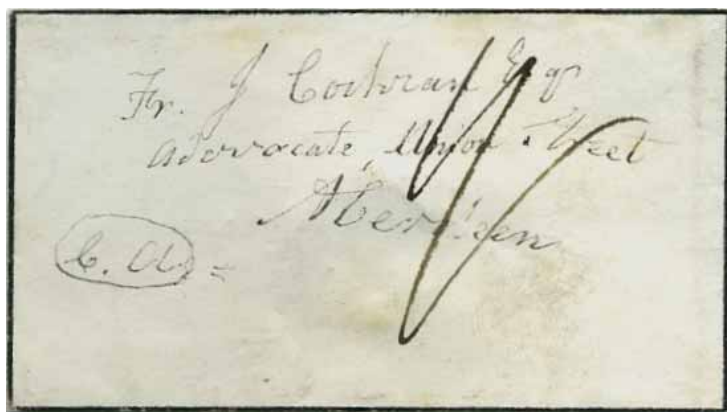 Fr. J Cochran Esqr
advocate, Union Street
Aberdeen
C. A.